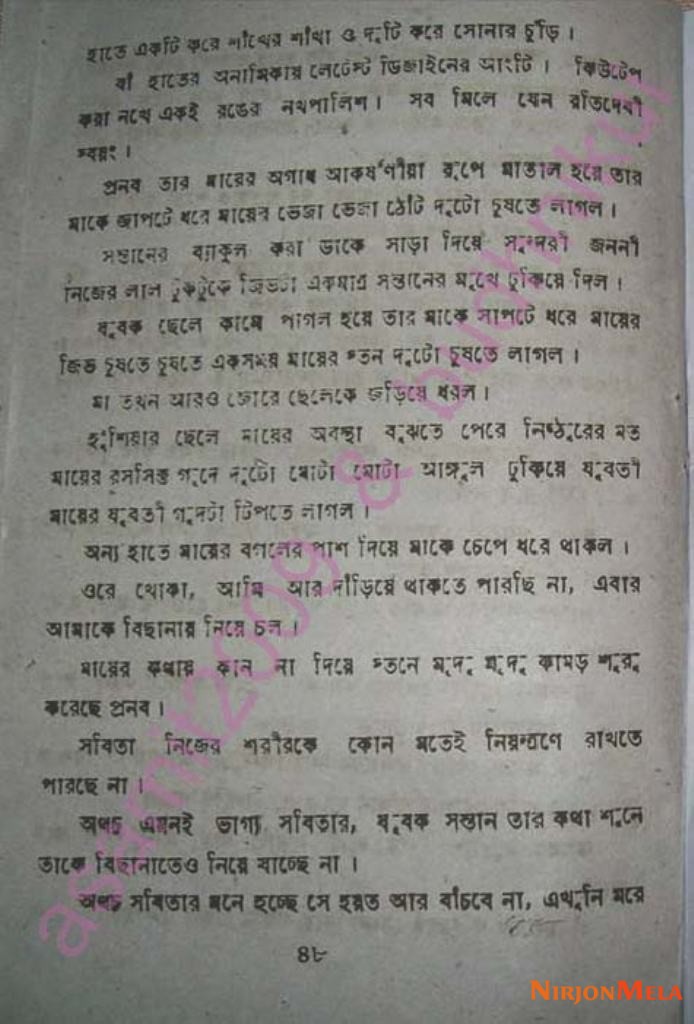 হাতে একটি করে শাঁখের শাঁখা ও দুটি করে সোনার চুড়ি।
বাঁ হাতের অনামিকায় লেটেস্ট ডিজাইনের আংটি। কিউটেপ
করা নখে একই রঙের নখপালিশ। সব মিলে যেন রতিদেবী
স্বয়ং।
প্রনব তার মায়ের অগাধ আকর্ষণীয়া রূপে মাতাল হয়ে তার
মাকে জাপটে ধরে মায়ের ভেজা ভেজা ঠোঁট দুটো চুষতে লাগল।
সন্তানের ব্যাকুল করা ডাকে সাড়া দিয়ে সুন্দরী জননী
নিজের লাল টুকটুকে জিভটা একমাত্র সন্তানের মুখে ঢুকিয়ে দিল।
যুবক ছেলে কামে পাগল হয়ে তার মাকে সাপটে ধরে মায়ের
জিভ চুষতে চুষতে একসময় মায়ের স্তন দুটো চুষতে লাগল।
মা তখন আরও জোরে ছেলেকে জড়িয়ে ধরল।
হুঁশিয়ার ছেলে মায়ের অবস্থা বুঝতে পেরে নিষ্ঠুরের মত
মায়ের রসসিক্ত গুদে দুটো মোটা মোটা আঙ্গুল ঢুকিয়ে যুবতী
মায়ের যুবতী গুদটা টিপতে লাগল।
অন্য হাতে মায়ের বগলের পাশ দিয়ে মাকে চেপে ধরে থাকল।
ওরে খোকা, আমি আর দাঁড়িয়ে থাকতে পারছি না, এবার
আমাকে বিছানায় নিয়ে চল।
মায়ের কথায় কান না দিয়ে স্তনে মৃদু মৃদু কামড় শুরু
করেছে প্রনব।
সবিতা নিজের শরীরকে কোন মতেই নিয়ন্ত্রণে রাখতে
পারছে না।
অথচ এমনই ভাগ্য সবিতার, যুবক সন্তান তার কথা শুনে
তাকে বিছানাতেও নিয়ে যাচ্ছে না।
অথচ সবিতার মনে হচ্ছে সে হয়ত আর বাঁচবে না, এখুনি মরে
৪৮
asamit2009 &
NIRJONMELA